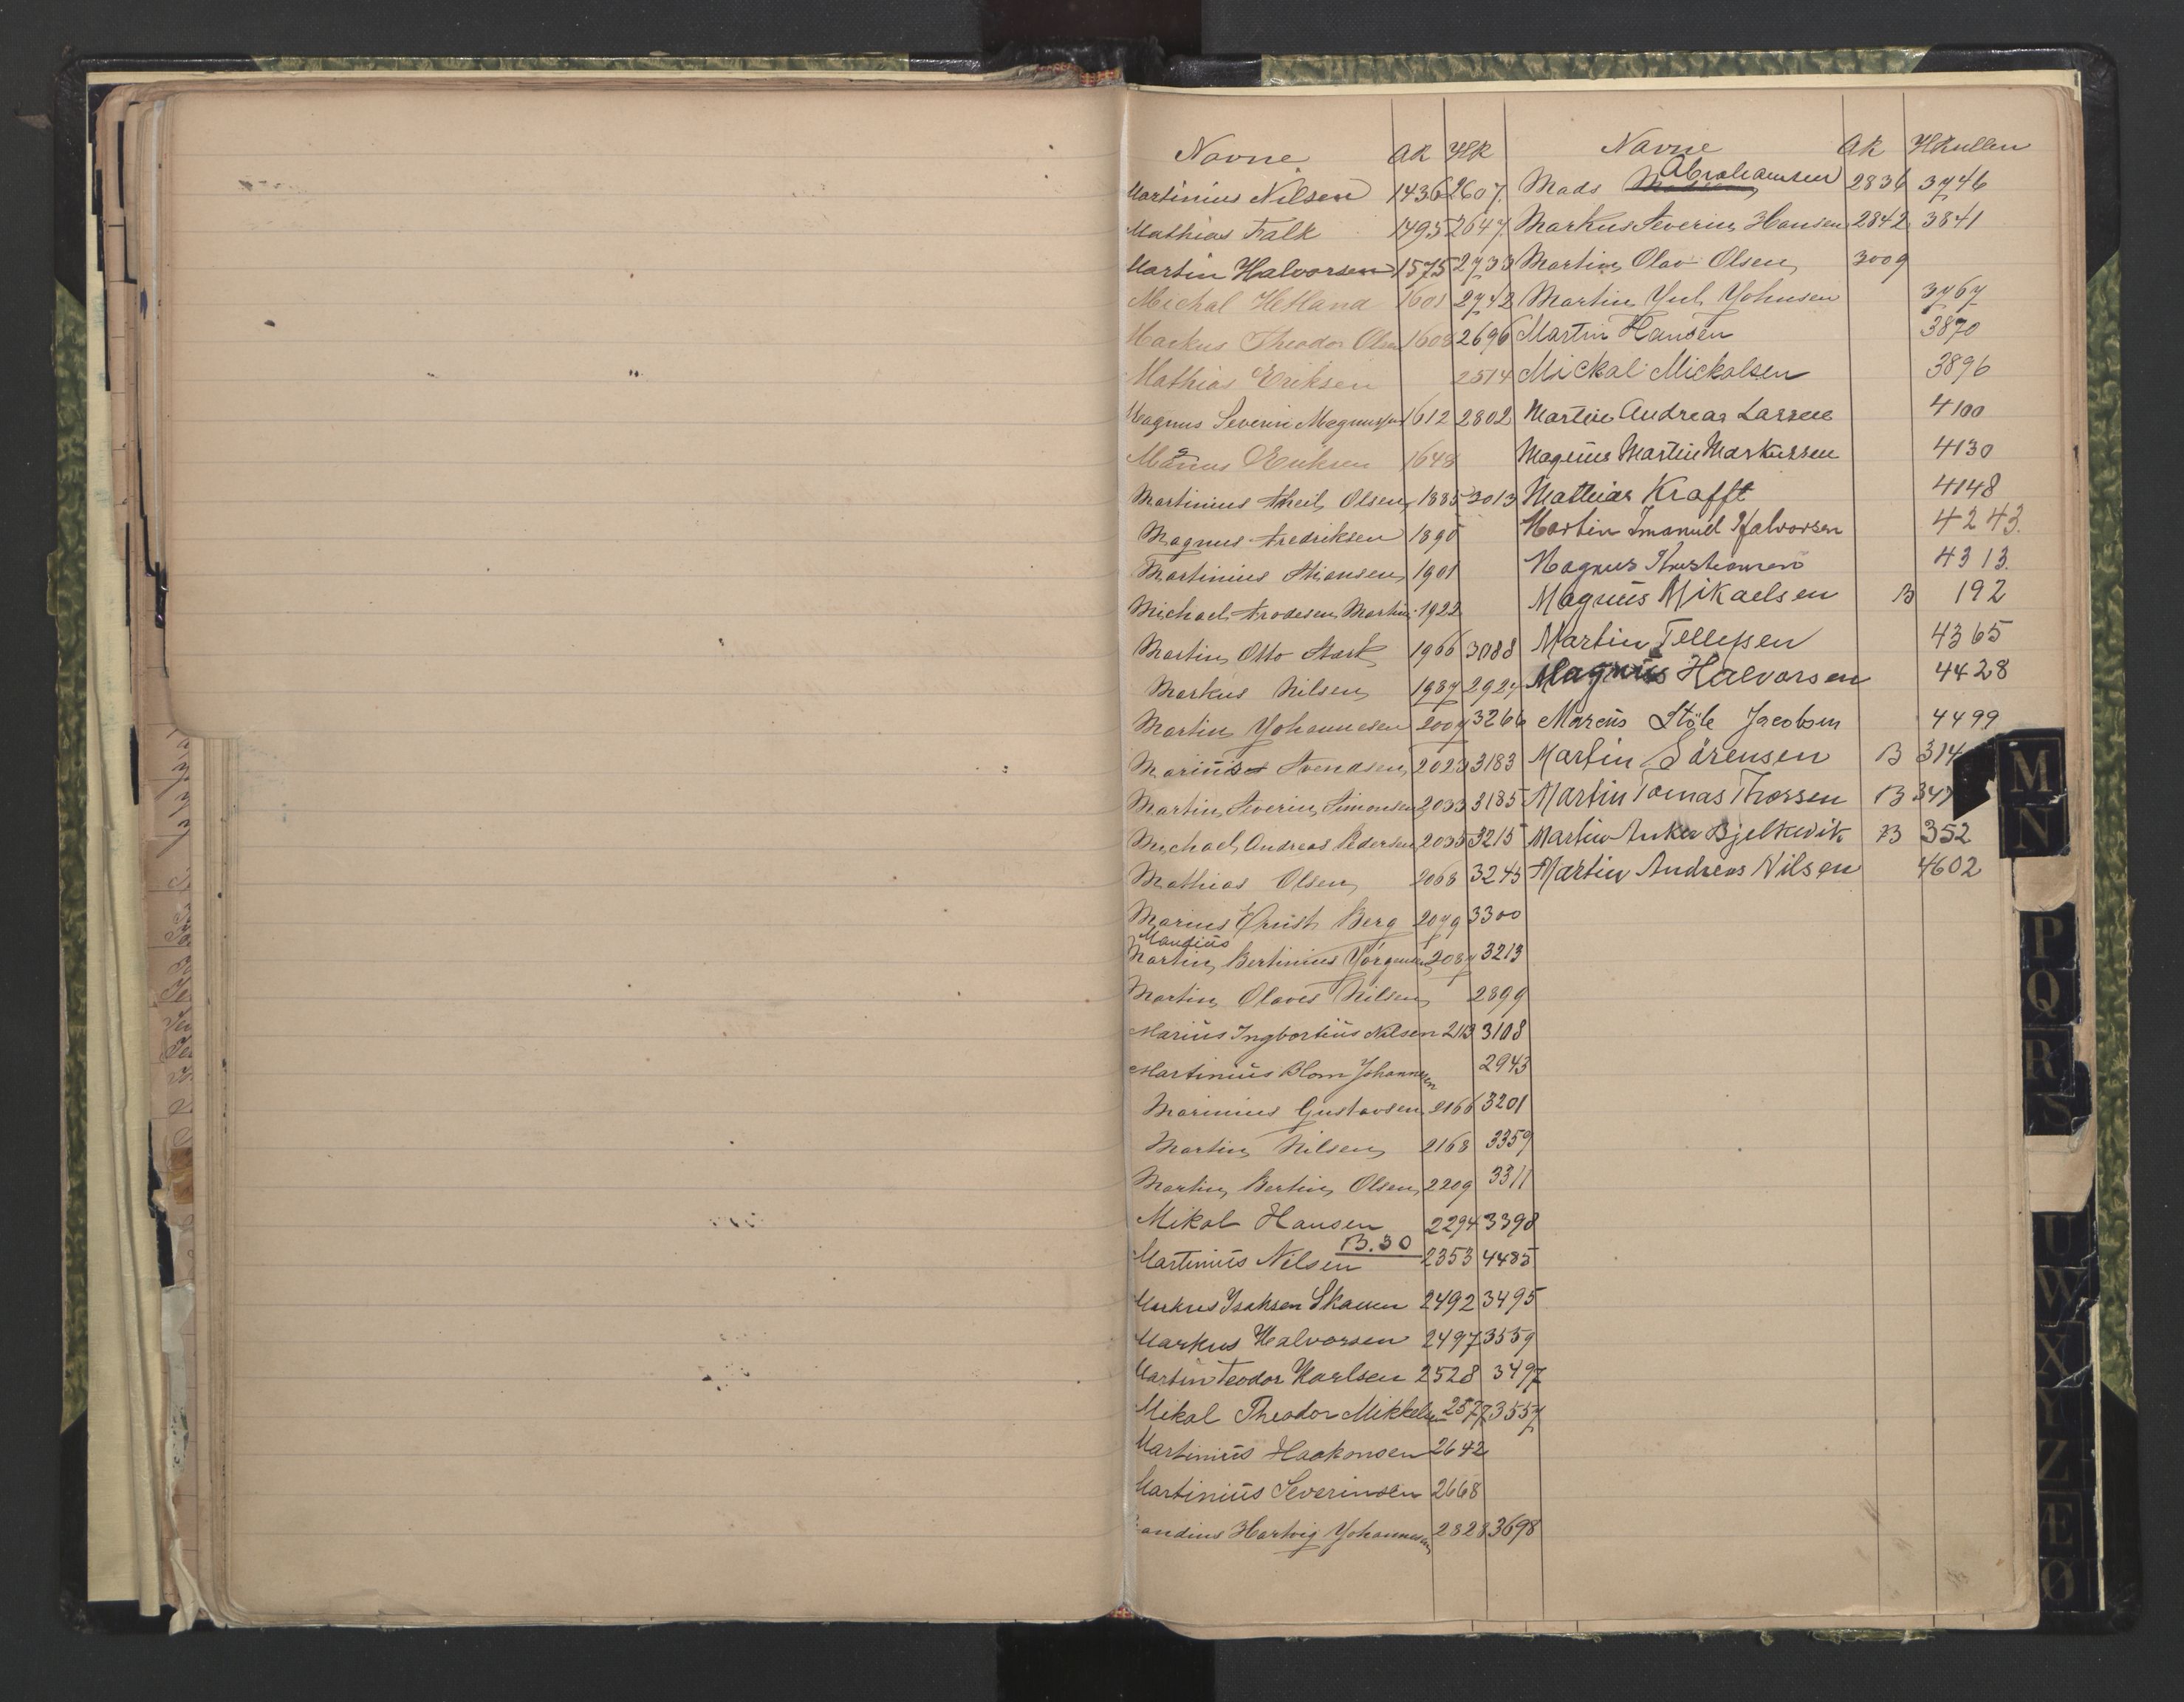 Navne AR HR
Martinius Nilsen 1436 2607
Mathias Falk 1495 2647
Martin Halvorsen 1575 2733
Michal Hetland 1601 2742
Markus Theodor Olsen 1608 2696
Mathias Eriksen 2514
Magnus Severin Magnussen 1612 2802
Månus Eriksen 1648
Martinius Olsen 1885 3013
Magnus Fredriksen 1890
Martinius Stiansen 1901
Michael Frodesen Martin 1922
Martin Otto Stark 1966 3088
Markus Nilsen 1987 2927
Martin Yohannesen 2007 3266
Marinius Svendsen 2023 3183
Martin Severin Simonsen 2033 3185
Michael Andreas Pedersen 2035 3215
Mathias Olsen 2068 3243
Marius Ernist Berg 2079 3300
Mandius
Martin Bertinius Yörgensen 2087 3213
Martin Olaves Nilsen 2899
Marius Ingbortius Nilsen 2113 3108
Martinius Blom Johannesen 2943
Marinius Gustavsen 2166 3201
Martin Nilsen 2168 3359
Martin Bertin Olsen 2209 3311
Mikal Hansen 2294 3398
B.30
Martinius Nilsen 2353 4485
Markus Isaksen Skauen 2492 3495
Markus Halvorsen 2497 3559
Martin Teodor Karlsen 2528 3497
Mikal Theodor Mikkelsen 2577 3557
Martinius Haakonsen 2642
Martinius Severinsen 2668
andius Hartvig Yohannesen 2828 3698
Navne AR HRullen
Abrahamsen
Mads 2836 3746
Markus Severin Hansen 2842 3841
Martin Olav Olsen 3009
Martin Yul Yohnsen 3767
Martin Hansen 3870
Mickal Mickalsen 3896
Martin Andreas Larsen 4100
Magnus Martin Markussen 4130
Mathias Krafft 4148
Martin Imanuel Halvorsen 4243.
Magnus Kristiansen 4313.
Magnus Mikaelsen B 192
Martin Tellefsen 4365
Magnus Halvorsen 4428
Marcus Stöle Jacobsen 4499
Martin Sörensen B 314
Martin Tomas Thorsen B 347
Martin Anker Bjelkevik B 352
Martin Andreas Nilsen 4602
M
N
P
Q
R
S
U
W
X
Y
Z
Æ
Ø